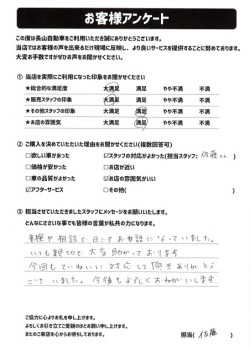 お客様アンケート
この度は長山自動車をご利用いただき誠にありがとうございます。
当店ではお客様の声を出来るだけ現場に反映し、より良いサービスを提供することに努めております。
大変お手数ですがぜひお声をお聞かせください。
① 当店を実際にご利用になった印象をお聞かせください
★総合的な満足度 大満足 満足 やや不満 不満
★販売スタッフの印象 大満足 満足 やや不満 不満
★その他スタッフの印象 大満足 満足 やや不満 不満
★お店の雰囲気 大満足 満足 やや不満 不満
② ご購入を決めていただいた理由をお聞かせください(複数回答可)
□欲しい車があった ☑スタッフの対応がよかった(担当スタッフ: 佐藤さん)
□価格が安かった □お店が近い
□車の品質がよかった ☑お店の雰囲気がいい
☑アフターサービス □その他( )
③ 担当させていただきましたスタッフにメッセージをお願いいたします。
どんなにささいな事でも皆様の言葉が私共の力になります。
車検や相談で日ごろお世話になっていました。
いつも親切で大変助かっております
今回もていねいに対応して頂きありがとう
ございました。今後もよろしくおねがいします
ご協力に心よりお礼を申し上げます。
よろしくお引き立てご愛顧のほどお願い申し上げます。
またのご来店を心からお待ちしております。
担当( 佐藤 )